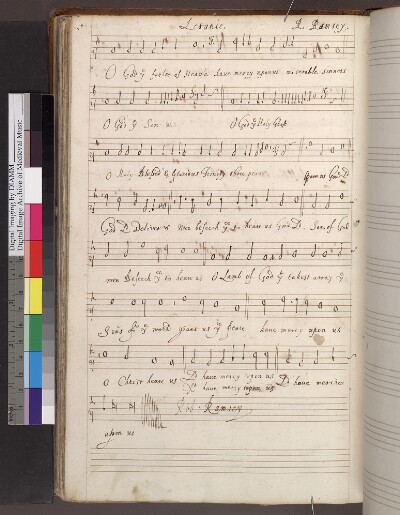 Letanie. R. Ramsey.
O God ye father of Heav'n have mercy upon us miserable sinners
O God ye Son us O God ye Holy Ghost
O Holy Blessed & Glorious Trinity three persons Spare us Good Ld
Good Ld Deliver us Wee beseech thee to heare us Good Ld. Son of God
wee beseech thee to heare us O Lamb of God yt takest away ye
sins of ye world grant us thy peace have mercy upon us
O Christ heare us Ld have mercy upon us Ld have mercie
Xt have mercy upon us
upon us
Rob: Ramsey
Digital Imaging by DIAMM
Digital Image Archive of Medieval Music